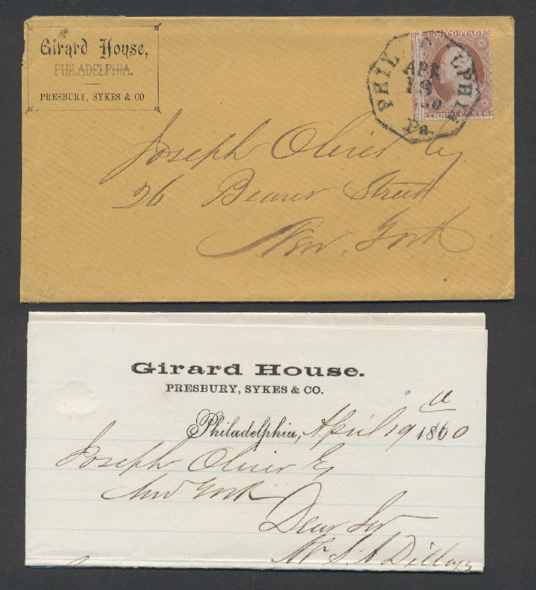 Girard House,
PHILADELPHIA.
PRESBURY, SYKES & CO
PHILADELPHIA
APR
Pa.
Joseph Oliver Esq
26 Beaver Street
New York
Girard House.
PRESBURY, SYKES & CO.
Philadelphia, April 19 1860
Joseph Oliver Esq
New York
Dear Sir
Mr S. A